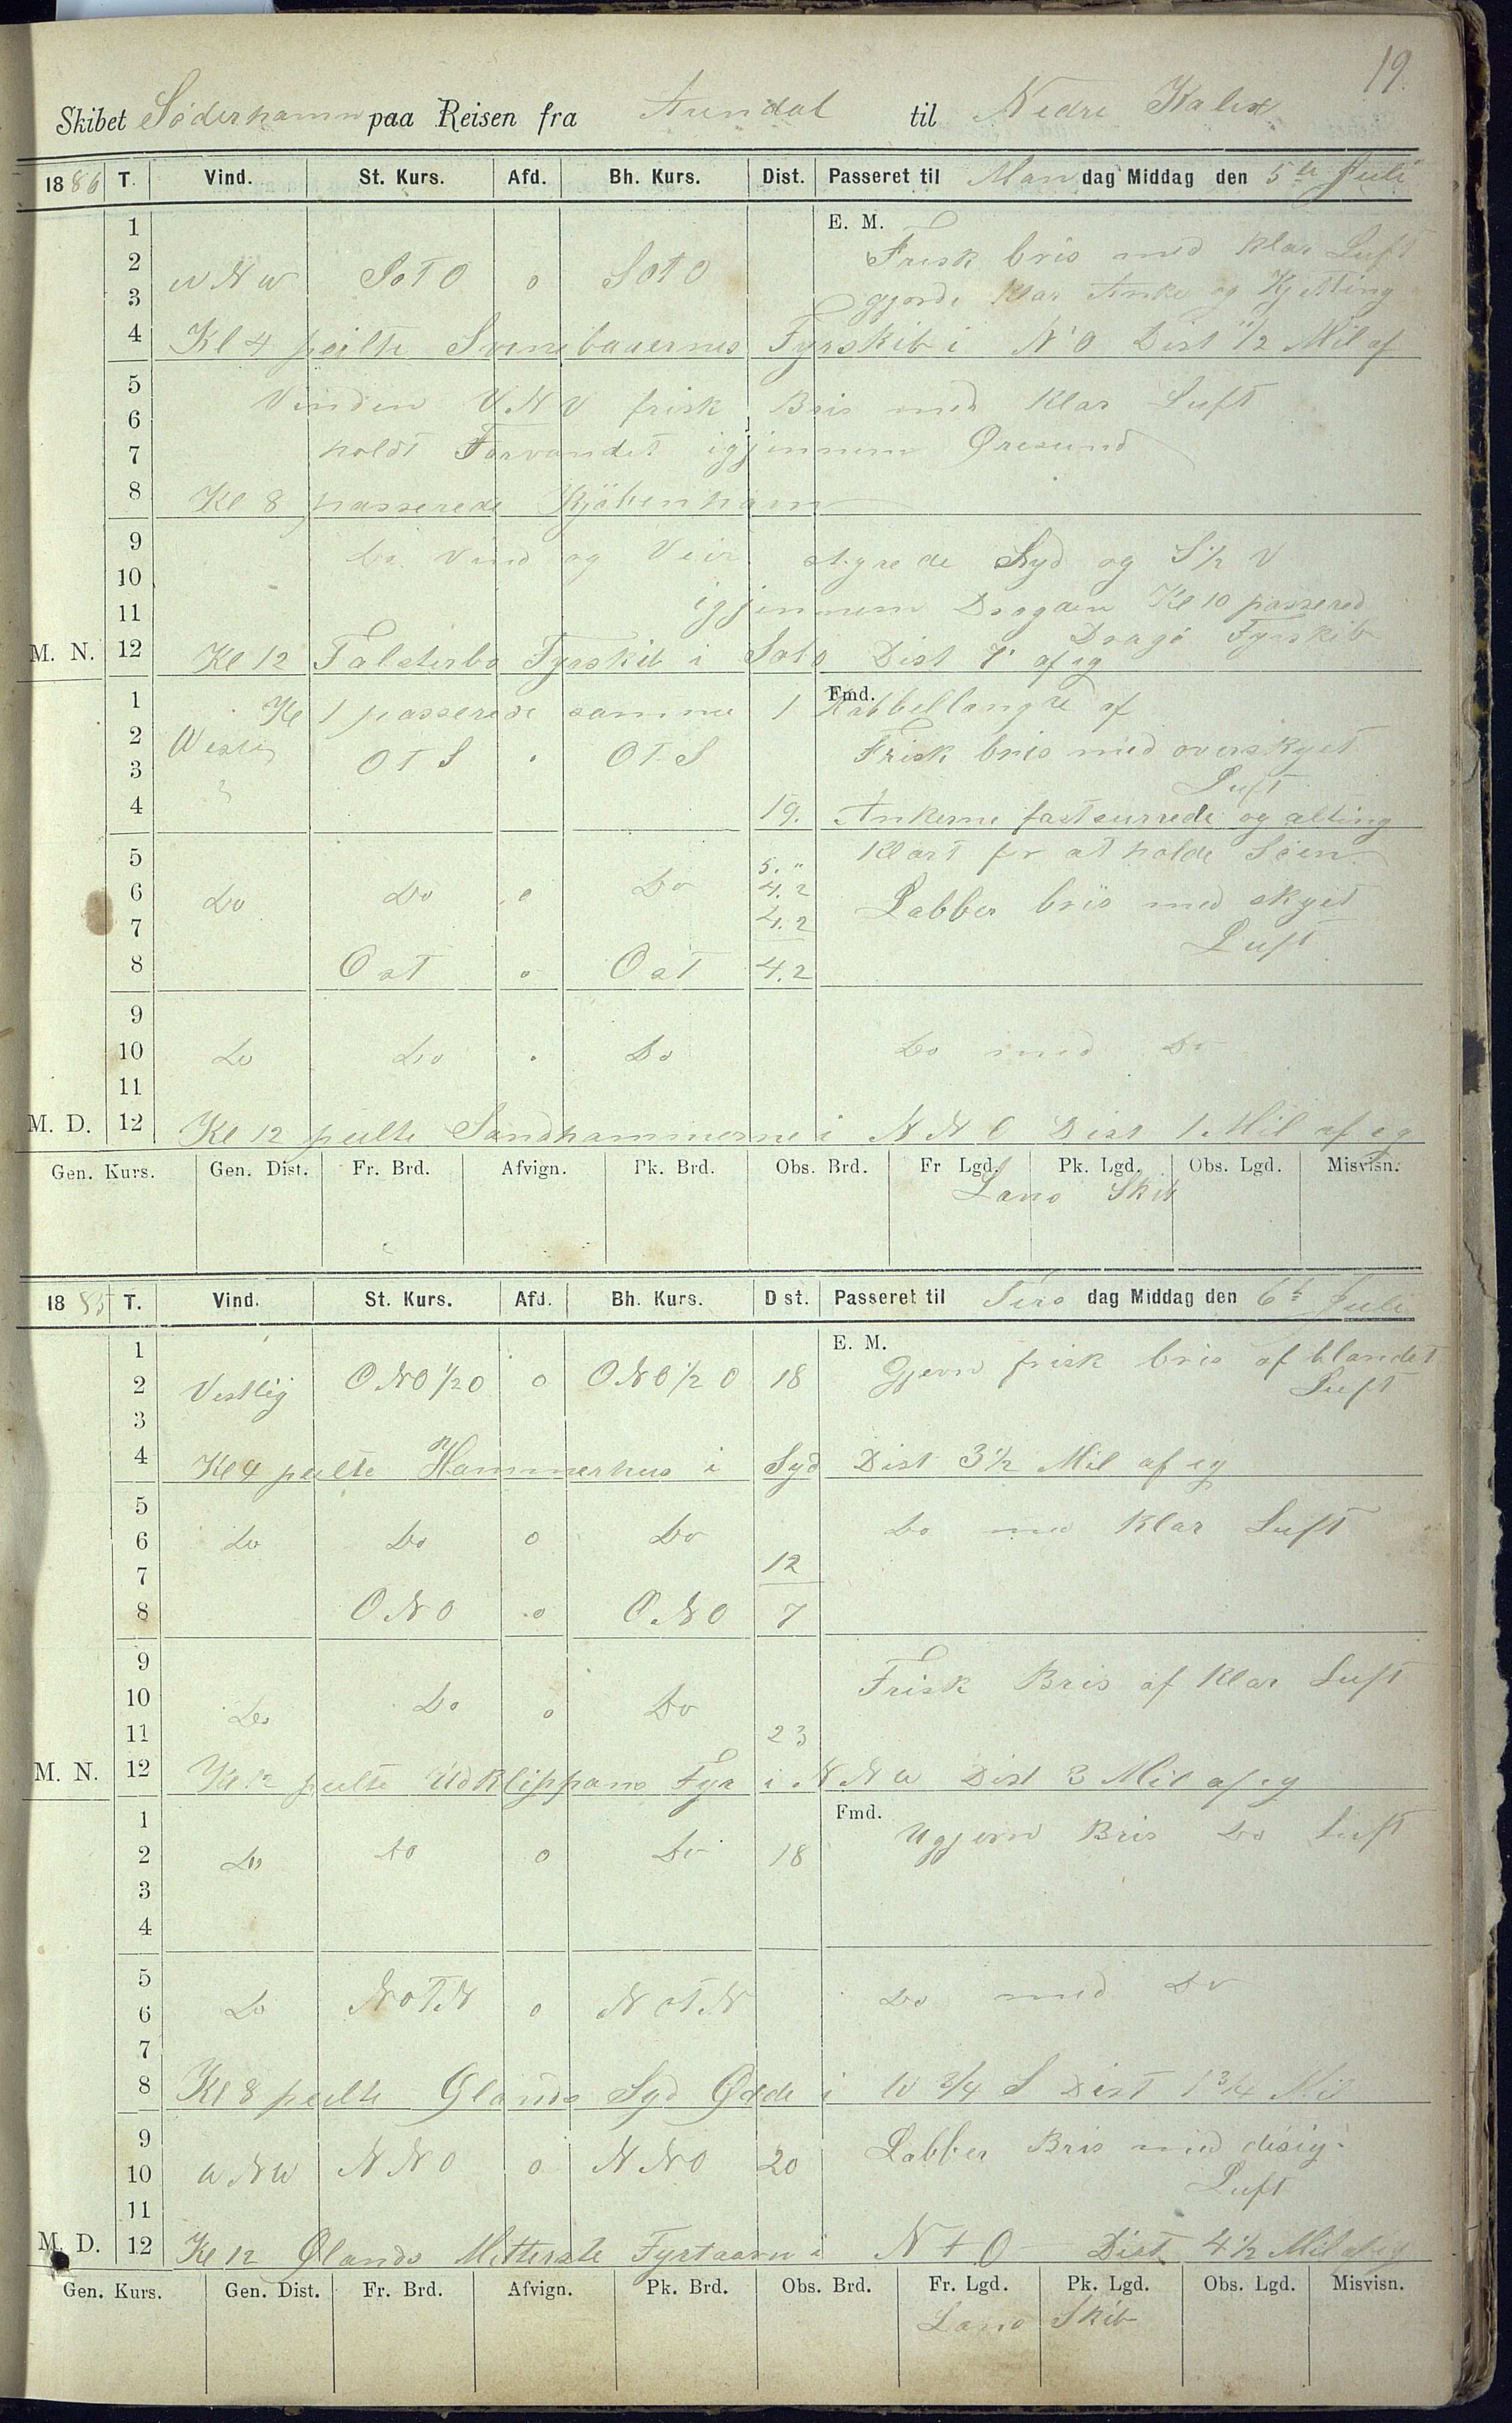 19.
Skibet Söderhamn paa Reisen fra Arendal til Nedre Kalix
1886 T. Vind. St. Kurs. Afd. Bh. Kurs. Dist. Passeret til Mandag Middag den 5te Juli
E. M.
1
2 Frisk bris med klar Luft
WNW SOTO 0 SOTO
3 gjorde klar Anke og Kjetting
4 Kl 4 peilte Svinebauernes Fyrskib i N'O Dist 1/2 Mil af
5 Vinden VNV frisk Bris med klar Luft
6
7 holdt Farvandet igjennem Øresund
8 Kl 8 passerede Kjöbenhavn
9 Do Vind og Veir styrede Syd og S 1/2 V
10
11 igjennem Drogden Kl 10 passered
Dragö Fyrskib
M. N. 12 Kl 12 Falsterbo Fyrskib i SOTO Dist 7' af eg
Fmd.
1 Kl 1 passerede samme 1 Kabbellangde af
2 Westlig OTS 0 OTS Frisk bris med overskyet
3 Luft
4 19. Ankerne fastsurrede og alting
5 5. " Klart for at holde Söen
6 Do Do 0 Do 4.2 Labber bris med skyet
7 4.2 Luft
8 Ost 0 Ost 4.2
9
10 Do Do 0 Do Do med Do
11
M. D. 12 Kl 12 peilte Sandhammerne i NNO Dist 1 Mil af eg
Gen. Kurs. Gen. Dist. Fr. Brd. Afvign. Pk. Brd. Obs. Brd. Fr Lgd. Pk. Lgd. Obs. Lgd. Misvisn.
Lans Skib
1885 T. Vind. St. Kurs. Afd. Bh. Kurs. Dst. Passeret til Tirsdag Middag den 6te Juli
E. M.
1 Gjevn frisk bris af blandet
2 Vestlig ONO 1/2 O 0 ONO 1/2 O 18 Luft
3
4 Kl 4 peilte Hammerhus i Syd Dist 3 1/2 Mil af eg
5 Do med klar Luft
6 Do Do 0 Do
7 12
8 ONO 0 ONO 7
9 Frisk Bris af klar Luft
10 Do Do 0 Do
11 23
M. N. 12 Kl 12 peilte Udklippans Fyr i NNW Dist 3 Mil af eg
Fmd.
1 Ugjevn Bris Do Luft
2 Do Do 0 Do 18
3
4
5
6 Do NOTN 0 NOTN Do med Do
7
8 Kl 8 peilte Ølands Syd Odde i W 3/4 S Dist 1 3/4 Mil
9 Labber Bris med disig
10 WNW NNO 0 NNO 20 Luft
11
M. D. 12 Kl 12 Ølands Mitterste Fyrtaarn i N t O Dist 4 1/2 Mil af eg
Gen. Kurs. Gen. Dist. Fr. Brd. Afvign. Pk. Brd. Obs. Brd. Fr. Lgd. Pk. Lgd. Obs. Lgd. Misvisn.
Lans Skib